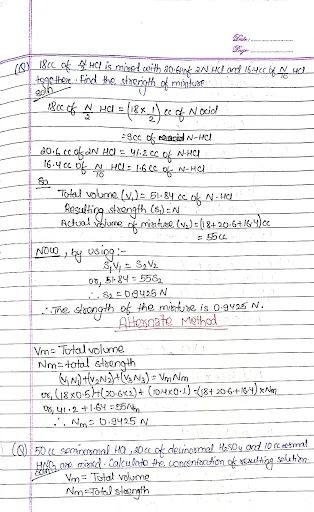 Date:
Page
(Q) 18cc of N/2 HCl is mixed with 20.6cc of 2N HCl and 16.4cc of N/10 HCl
together. Find the strength of mixture.
Soln
18cc of N/2 HCl = (18 × 1/2) cc of N acid
= 9cc of N-HCl
20.6 cc of 2N HCl = 41.2 cc of N-HCl
16.4 cc of N/10 HCl = 1.6 cc of N-HCl
So
Total volume (V₁) = 51.84 cc of N-HCl
Resulting strength (S₁) = N
Actual volume of mixture (V₂) = (18+20.6+16.4)cc
= 55cc
NOW, by using:-
S₁V₁ = S₂V₂
or, 51.84 = 55S₂
∴ S₂ = 0.9425 N
∴ The strength of the mixture is 0.9425 N.
Alternate Method
Vm = Total volume
Nm = total strength
(V₁N₁)+(V₂N₂)+(V₃N₃) = VmNm
or, (18×0.5)+(20.6×2)+(16.4×0.1) = (18+20.6+16.4)×Nm
or, 41.2+1.64 = 55Nm
∴ Nm = 0.9425 N
(Q) 50 cc seminormal HCl, 30cc of decinormal H₂SO₄ and 10 cc normal
HNO₃ are mixed. Calculate the concentration of resulting solution.
Soln
Vm = Total volume
Nm = Total strength